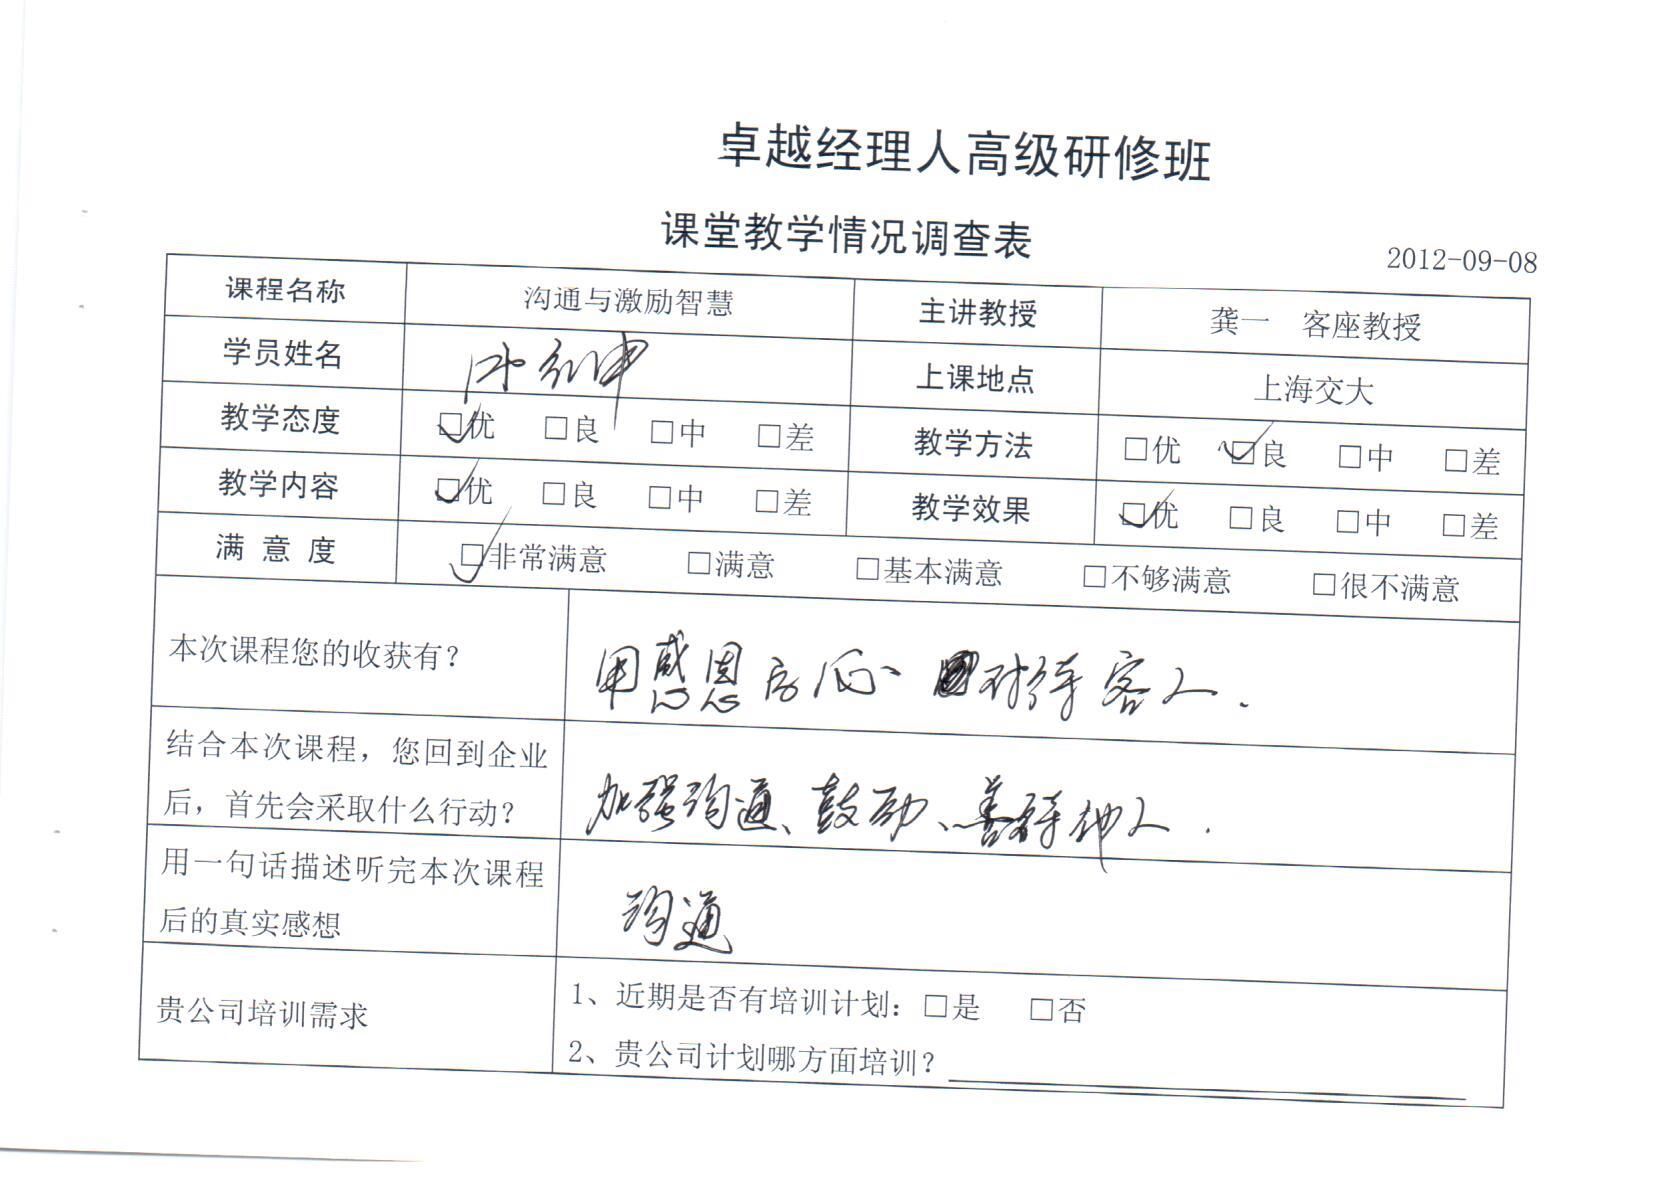 卓越经理人高级研修班
课堂教学情况调查表
2012-09-08
课程名称 沟通与激励智慧 主讲教授 龚一 客座教授
学员姓名 上课地点 上海交大
教学态度 ☑优 □良 □中 □差 教学方法 □优 ☑良 □中 □差
教学内容 ☑优 □良 □中 □差 教学效果 ☑优 □良 □中 □差
满意度 ☑非常满意 □满意 □基本满意 □不够满意 □很不满意
本次课程您的收获有？
用感恩 心 对待客人.
结合本次课程，您回到企业
后，首先会采取什么行动？
加强沟通、鼓励、善待他人.
用一句话描述听完本次课程
后的真实感想
沟通
贵公司培训需求
1、近期是否有培训计划：□是 □否
2、贵公司计划哪方面培训？